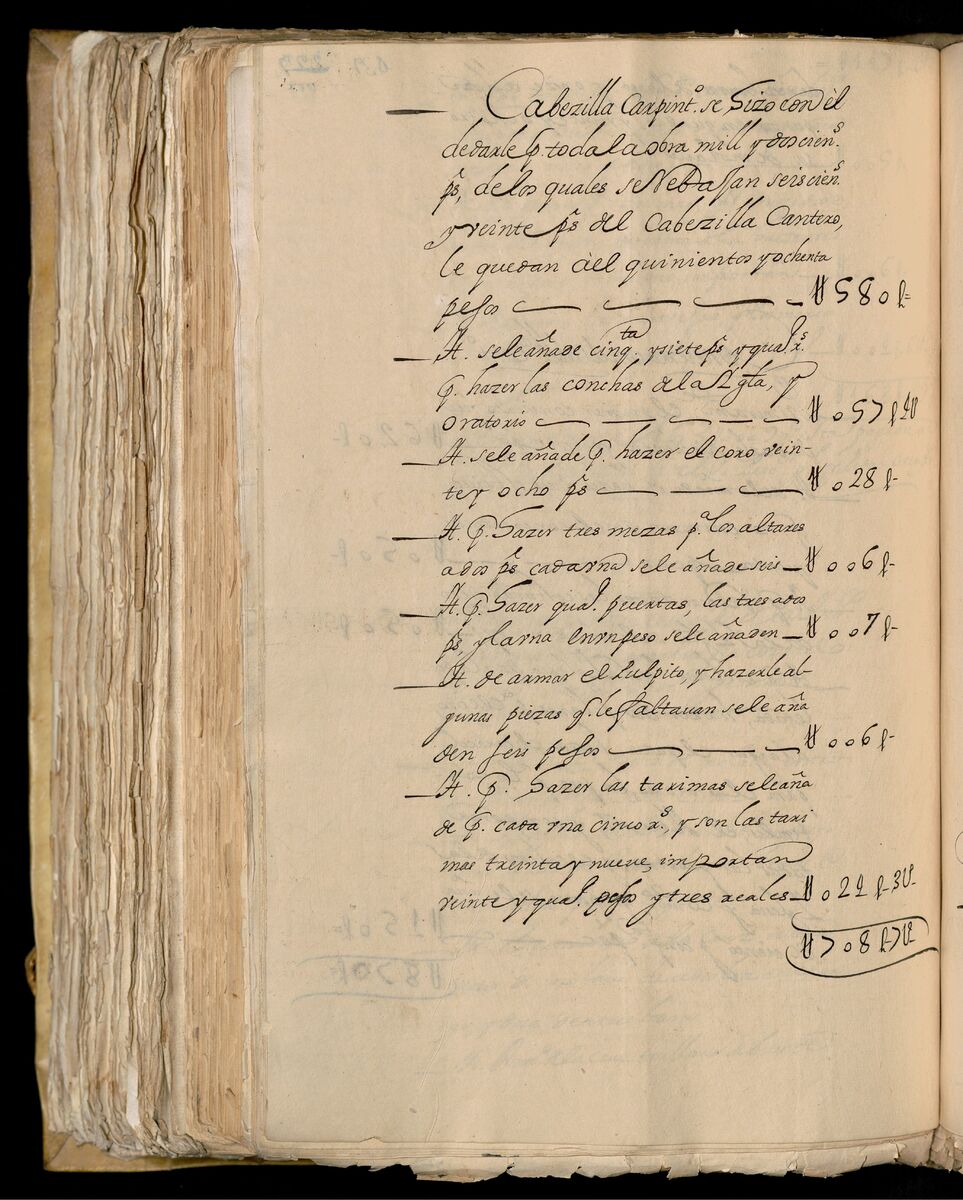 Cabezilla Carpint.º se hizo con èl
dedarle p.r toda la obra mill y dosçien.s
p.s, de los quales se Rebajan seisçien.s
y veinte p.s del Cabezilla Cantero,
le quedan àel quinientos y ochenta
pesos — — — U580 p.-
It. seleañade cinq.ta y siete p.s y quat.º r.s
p.r hazer las conchas de la Ygl.ª, y
oratorio — — — — U057 p. 4U
It. seleañade p.r hazer el coro vein-
te y ocho p.s — — — U028 p.-
It. p.r hazer tres mezas p.ª los altares
ados p.s cadavna seleañade seis — U006 p.-
It. p.r hazer quat.º puertas, las tres ados
p.s, y lavna envnpeso seleañaden — U007 p.-
It. de armar el Pulpito, y hazerle al-
gunas piezas q.e le faltauan seleaña
den seis pesos — — — U006 p.-
It. p.r hazer las tarimas seleaña
de p.r cada vna cinco r.s, y son las tari
mas treinta y nueve, importan
veinte y quat.º pesos y tres reales — U024 p.-3U-
U708 p.-7U